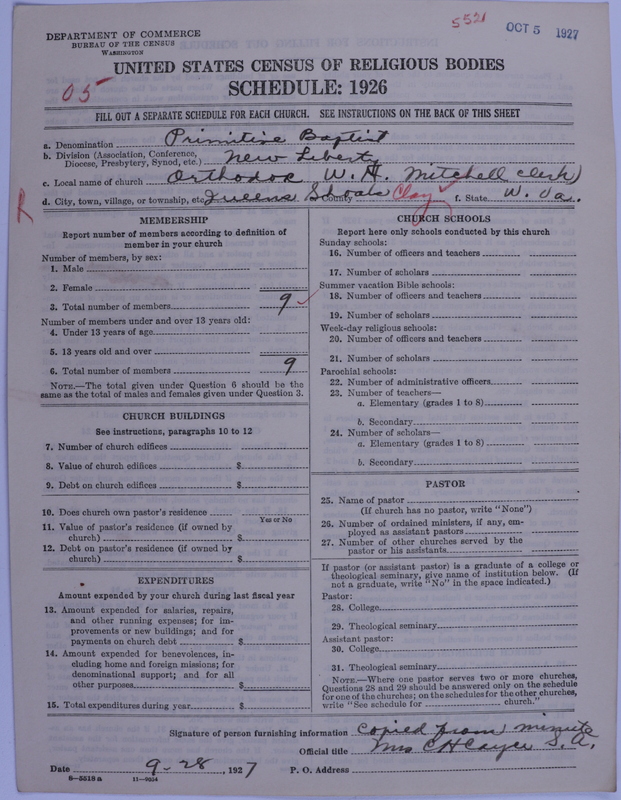 5521 OCT 5 1927
DEPARTMENT OF COMMERCE
BUREAU OF THE CENSUS
WASHINGTON
UNITED STATES CENSUS OF RELIGIOUS BODIES
05
SCHEDULE: 1926
FILL OUT A SEPARATE SCHEDULE FOR EACH CHURCH. SEE INSTRUCTIONS ON THE BACK OF THIS SHEET
a. Denomination Primitive Baptist
b. Division (Association, Conference,
Diocese, Presbytery, Synod, etc.) New Liberty
c. Local name of church Orthodox W. H. Mitchell clerk)
d. City, town, village, or township, etc. Queens Shoals County Clay f. State W. Va.
MEMBERSHIP
Report number of members according to definition of
member in your church
Number of members, by sex:
1. Male
2. Female
3. Total number of members 9
Number of members under and over 13 years old:
4. Under 13 years of age
5. 13 years old and over
6. Total number of members 9
NOTE.—The total given under Question 6 should be the
same as the total of males and females given under Question 3.
CHURCH BUILDINGS
See instructions, paragraphs 10 to 12
7. Number of church edifices
8. Value of church edifices $
9. Debt on church edifices $
10. Does church own pastor's residence
Yes or No
11. Value of pastor's residence (if owned by
church) $
12. Debt on pastor's residence (if owned by
church) $
EXPENDITURES
Amount expended by your church during last fiscal year
13. Amount expended for salaries, repairs,
and other running expenses; for im-
provements or new buildings; and for
payments on church debt $
14. Amount expended for benevolences, in-
cluding home and foreign missions; for
denominational support; and for all
other purposes $
15. Total expenditures during year $
CHURCH SCHOOLS
Report here only schools conducted by this church
Sunday schools:
16. Number of officers and teachers
17. Number of scholars
Summer vacation Bible schools:
18. Number of officers and teachers
19. Number of scholars
Week-day religious schools:
20. Number of officers and teachers
21. Number of scholars
Parochial schools:
22. Number of administrative officers
23. Number of teachers—
a. Elementary (grades 1 to 8)
b. Secondary
24. Number of scholars—
a. Elementary (grades 1 to 8)
b. Secondary
PASTOR
25. Name of pastor
(If church has no pastor, write "None")
26. Number of ordained ministers, if any, em-
ployed as assistant pastors
27. Number of other churches served by the
pastor or his assistants
If pastor (or assistant pastor) is a graduate of a college or
theological seminary, give name of institution below. (If
not a graduate, write "No" in the space indicated.)
Pastor:
28. College
29. Theological seminary
Assistant pastor:
30. College
31. Theological seminary
NOTE.—Where one pastor serves two or more churches,
Questions 28 and 29 should be answered only on the schedule
for one of the churches; on the schedules for the other churches,
write "See schedule for church."
Signature of person furnishing information Copied from minute
Official title Mrs C H S. A.
Date 9-28, 1927 P. O. Address
8-5518 a 11-9034